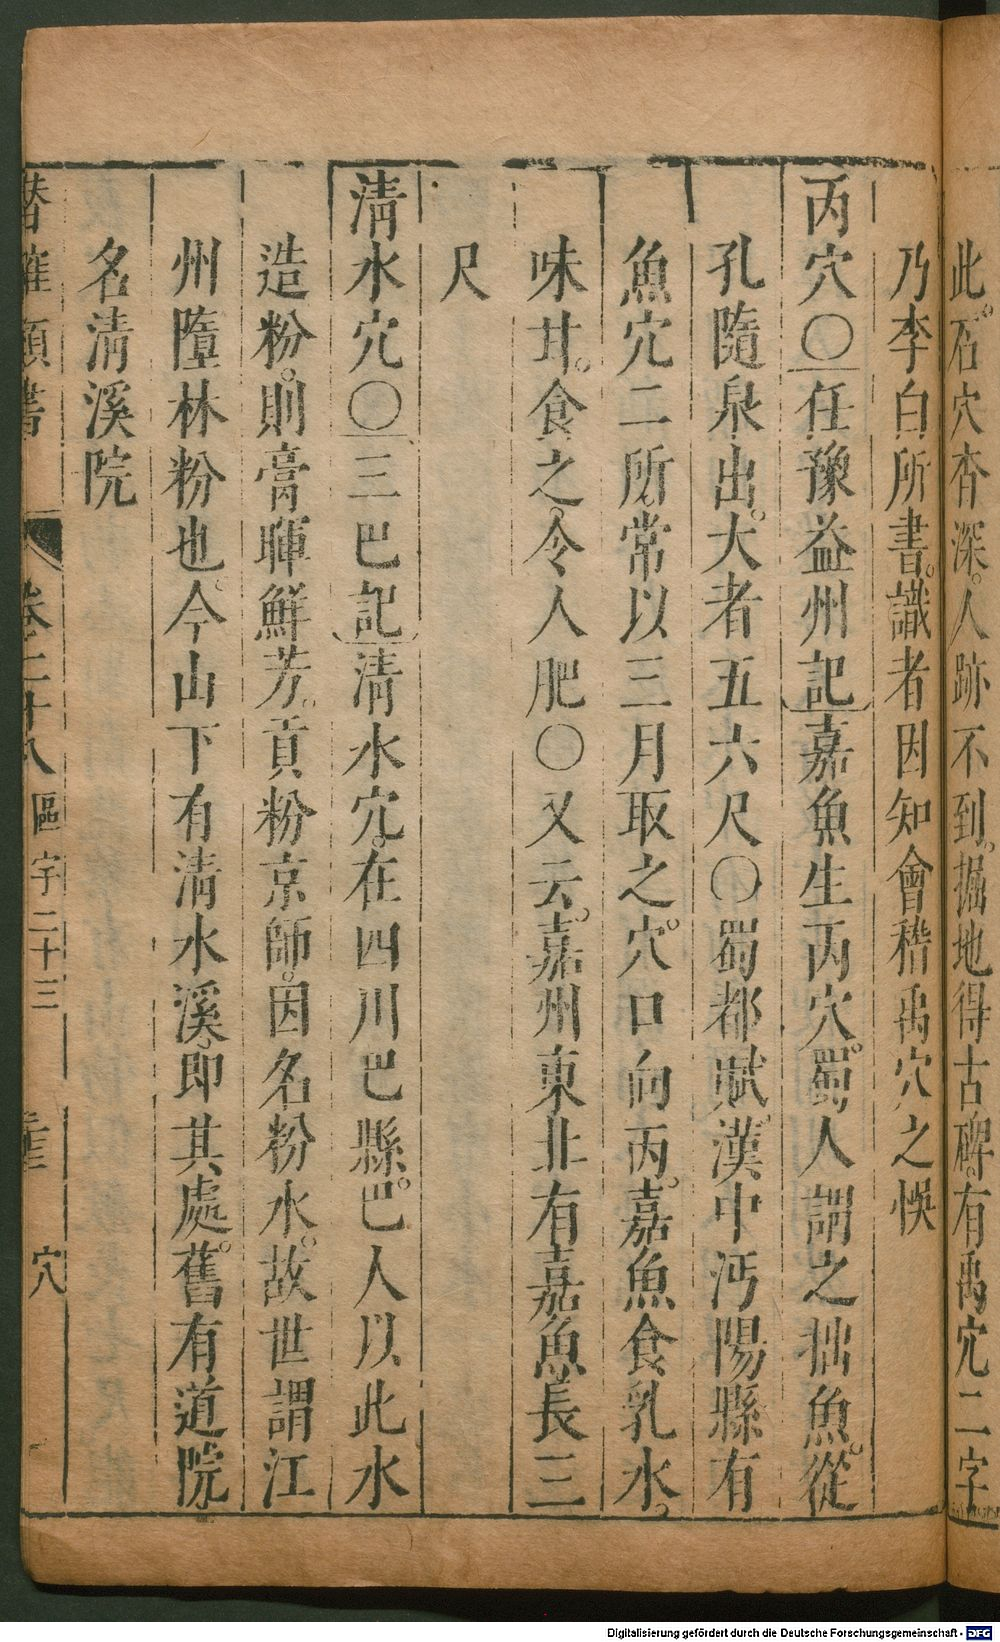 此。石穴杳深。人跡不到。掘地得古碑。有禹穴二字
乃李白所書。識者因知會稽禹穴之悞
丙穴〇任豫益州記嘉魚生丙穴。蜀人謂之拙魚。從
孔隨泉出。大者五六尺〇蜀都賦。漢中沔陽縣有
魚穴二所。常以三月取之。穴口向丙。嘉魚食乳水。
味甘。食之。令人肥〇又云。嘉州東北有嘉魚長三
尺
清水穴〇三巴記清水穴。在四川巴縣。巴人以此水
造粉。則膏暉鮮芳。貢粉京師。因名粉水。故世謂江
州墮林粉也。今山下有清水溪。即其處。舊有道院
名清溪院
潛確類書 卷二十八 區宇二十三 穴
Digitalisierung gefördert durch die Deutsche Forschungsgemeinschaft - DFG